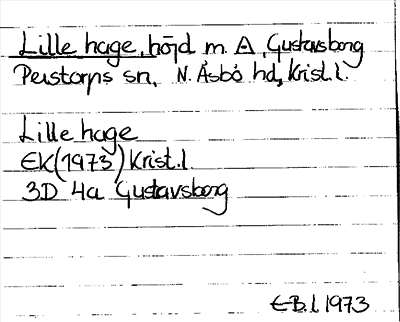 Lille hage, höjd m. A, Gustavsborg
Perstorps sn, N. Åsbo hd, Krist.l.
Lille hage
EK(1973) Krist.l
3D 4a Gustavsborg
E-B.l 1973